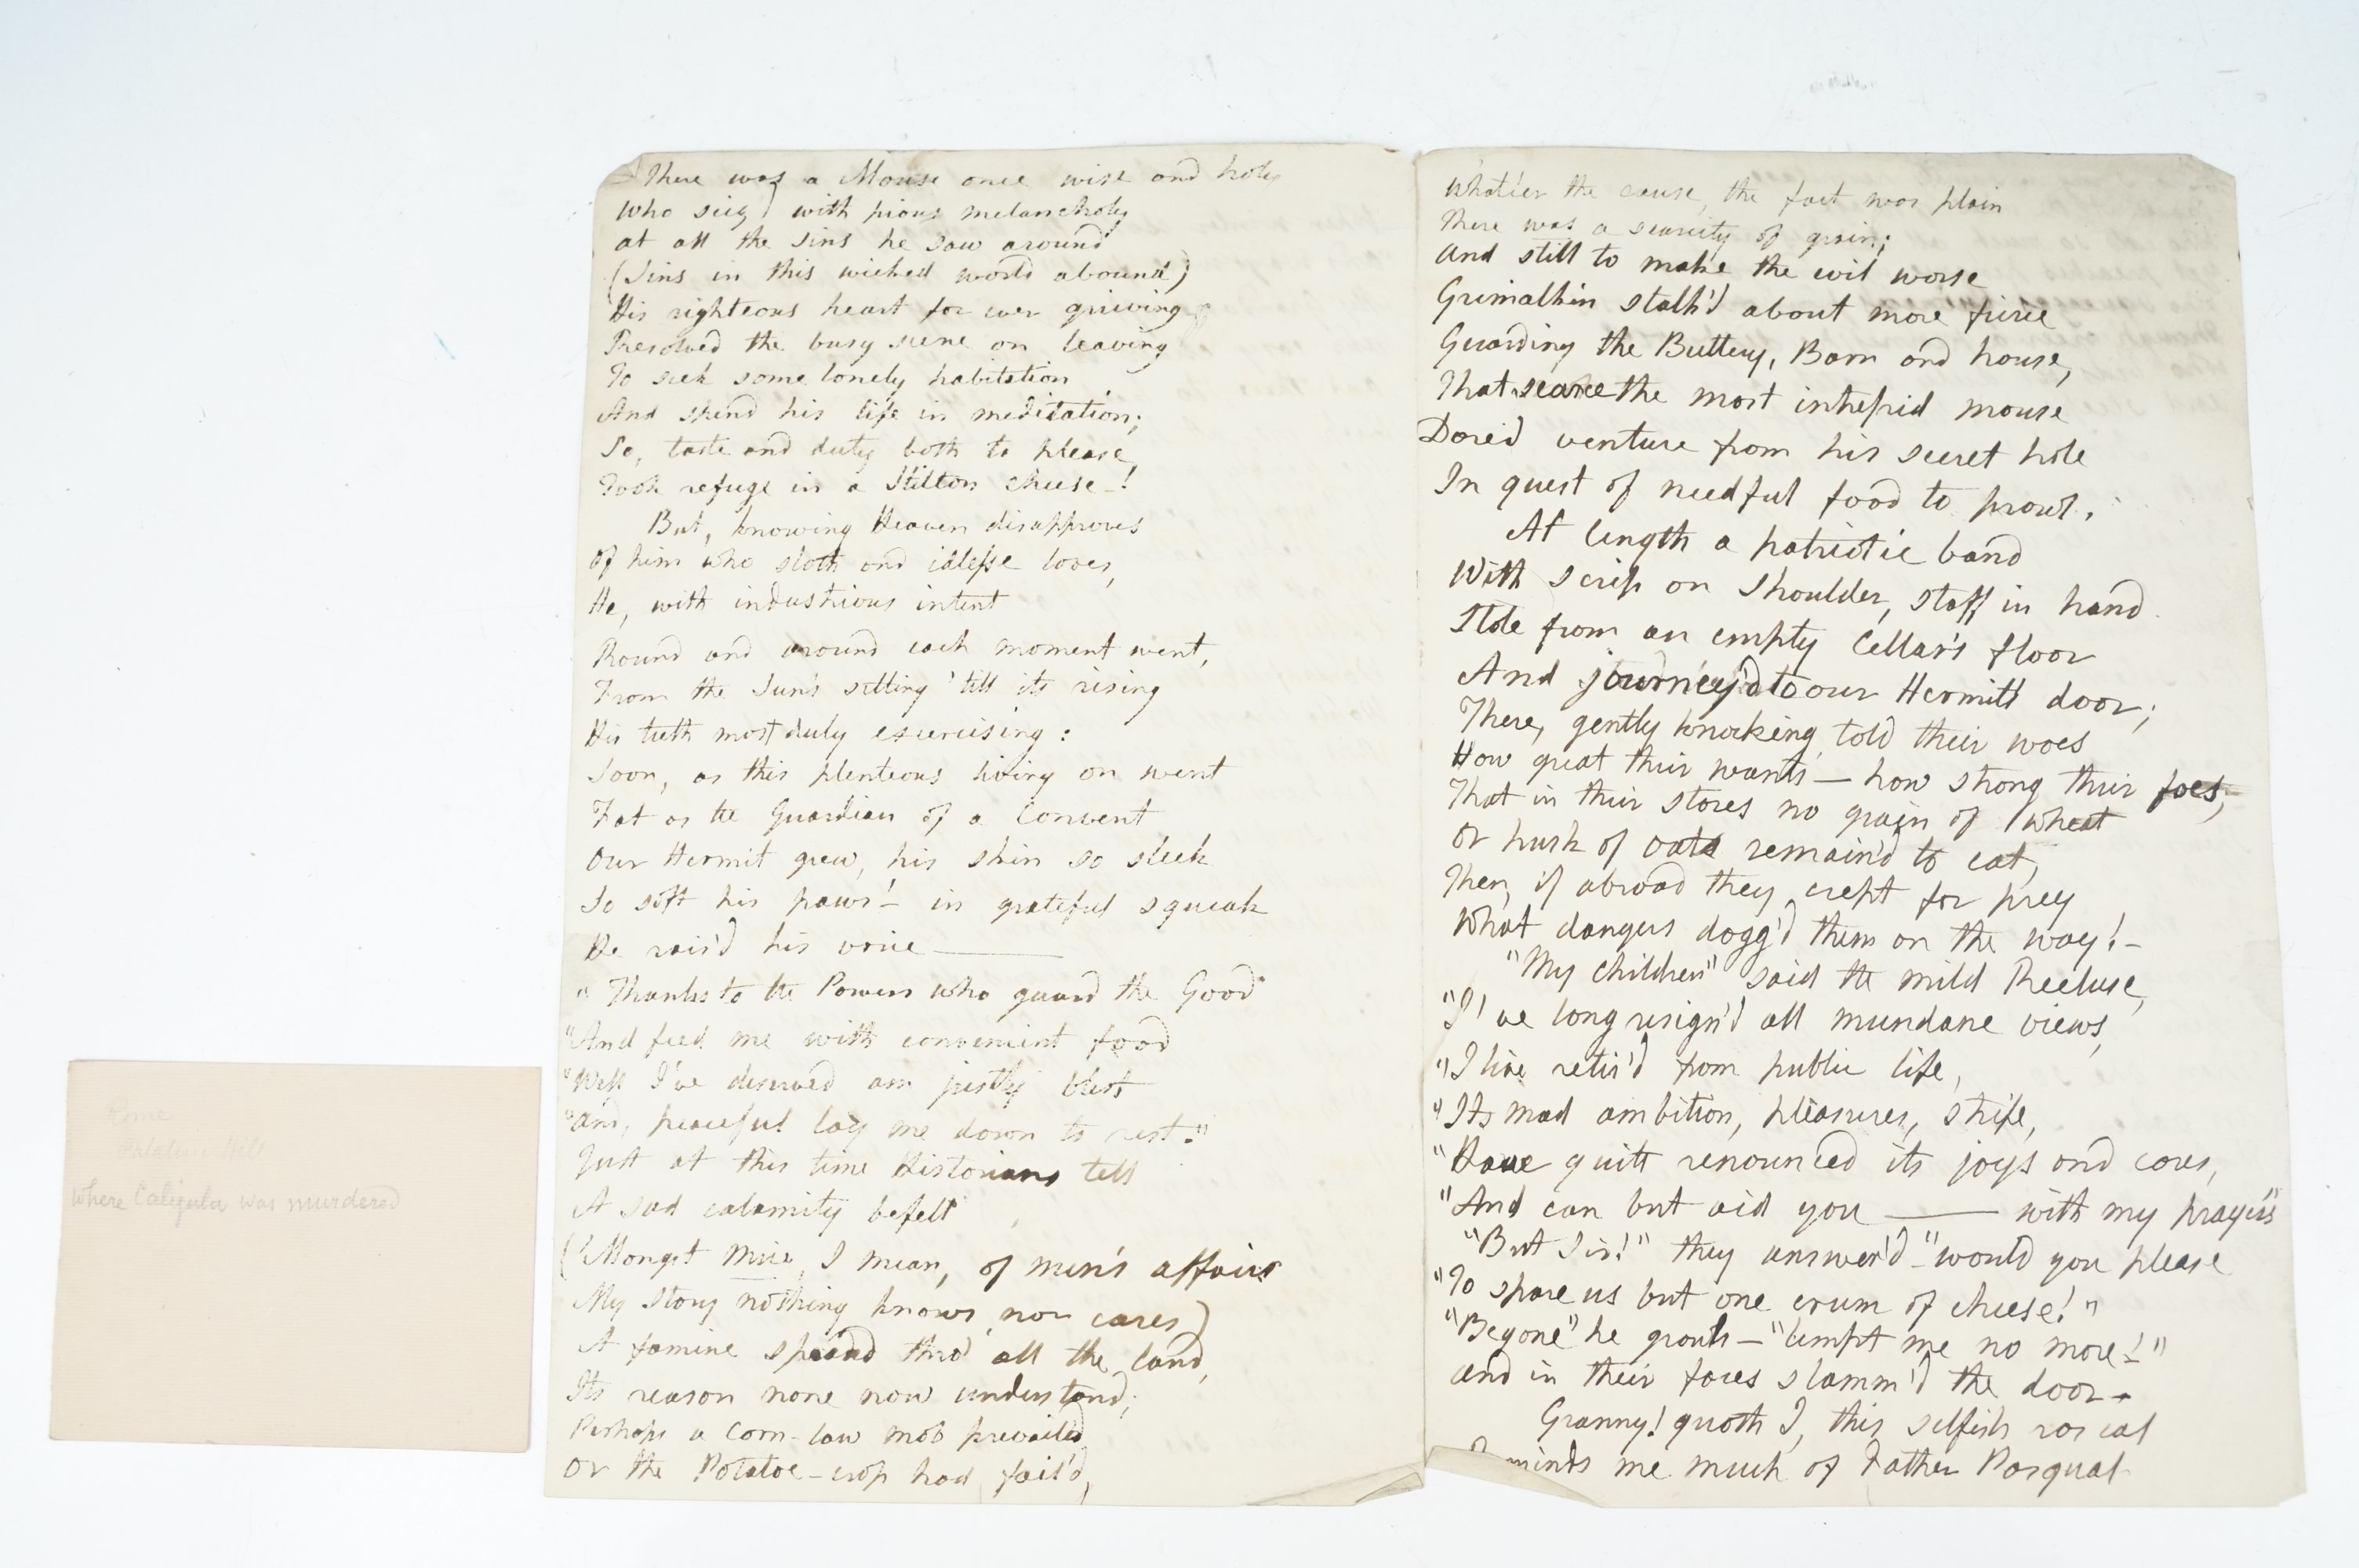 There was a Mouse once wise and holy
Who sieg'd with pious melancholy
at all the sins he saw around
(Sins in this wicked world abound)
His righteous heart for ever grieving
Resolved the busy scene on leaving
To seek some lonely habitation
And spend his life in meditation;
So, taste and duty both to please,
Took refuge in a Stilton cheese_!
But, knowing Heaven disapproves
Of him who sloth and idlesse loves,
He, with industrious intent
Round and around each moment went,
From the Sun's setting 'till its rising
His teeth most duly exercising:
Soon, as this plenteous living on went
Fat as the Guardian of a Convent
Our Hermit grew, his skin so sleek
So soft his paws!_ in grateful squeak
He rais'd his voice ———
" Thanks to the Powers who guard the Good
"And feed me with convenient food
"Well I've deserved am justly blest
"and, peaceful lay me down to rest."
Just at this time Historians tell
A sad calamity befell
('Mongst Mice, I mean, of men's affairs
My story nothing knows, nor cares)
A famine spread thro' all the land,
Its reason none now understand;
Perhaps a Corn-law mob prevailed
Or the Potatoe-crop had fail'd,
Whate'er the cause, the fact was plain
There was a scarcity of grain;
And still to make the evil worse
Grimalkin stalk'd about more fierce
Guarding the Buttery, Barn and house,
That scarce the most intrepid mouse
Dared venture from his secret hole
In quest of needful food to prowl.
At length a patriotic band
With scrip on shoulder, staff in hand
Stole from an empty Cellar's floor
And journey'd to our Hermit's door;
There, gently knocking told their woes
How great their wants — how strong their foes,
That in their stores no grain of wheat
Or husk of oats remain'd to eat,
Then, if abroad they crept for prey
What dangers dogg'd them on the way!—
"My children" said the mild Recluse,
"I've long resign'd all mundane views,
"I live retir'd from public life,
"Its mad ambition, pleasures, strife,
"Have quitt renounced its joys and cares,
"And can but aid you ——— with my prayers"
"But Sir!" they answer'd "would you please
"To spare us but one crum of cheese!"
"Begone" he growls — "tempt me no more!"
and in their faces slamm'd the door.
Granny! quoth I, this selfish rascal
minds me much of Father Pasqual
Rome
Palatine Hill
where Caligula was murdered